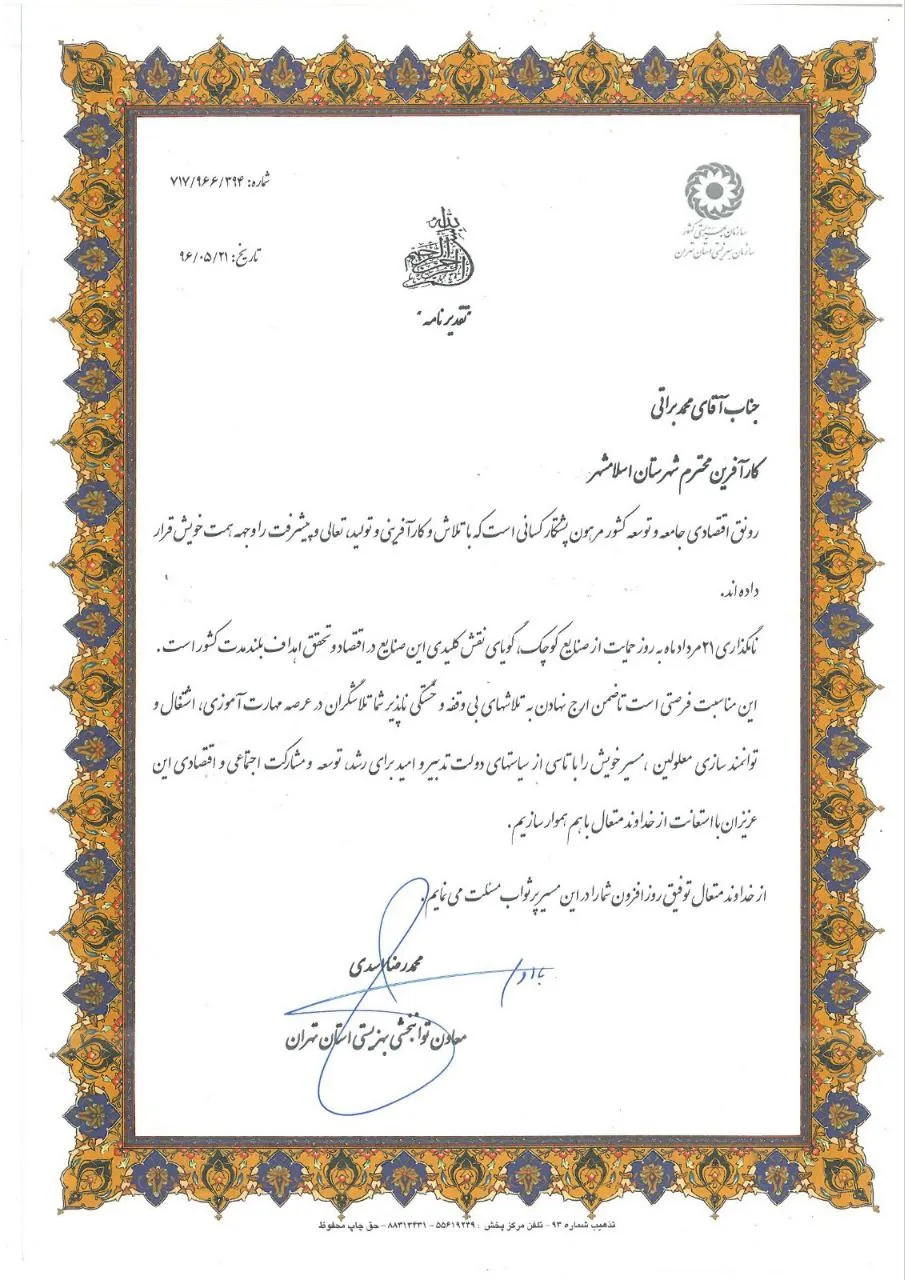 شماره: ۷۱۷/۹۶۶/۳۹۴
سازمان بهزیستی کشور
سازمان بهزیستی استان تهران
تاریخ: ۹۶/۰۵/۲۱
بسم الله الرحمن الرحیم
"تقدیرنامه"
جناب آقای محمد براتی
کارآفرین محترم شهرستان اسلامشهر
رونق اقتصادی جامعه و توسعه کشور مرهون پشتکار کسانی است که با تلاش و کارآفرینی و تولید، تعالی و پیشرفت را وجهه همت خویش قرار
داده اند.
نامگذاری ۲۱ مرداد ماه به روز حمایت از صنایع کوچک، گویای نقش کلیدی این صنایع در اقتصاد و تحقق اهداف بلند مدت کشور است.
این مناسبت فرصتی است تا ضمن ارج نهادن به تلاشهای بی وقفه و خستگی ناپذیر شما تلاشگران در عرصه مهارت آموزی، اشتغال و
توانمند سازی معلولین، مسیر خویش را با تاسی از سیاستهای دولت تدبیر و امید برای رشد، توسعه و مشارکت اجتماعی و اقتصادی این
عزیزان با استعانت از خداوند متعال با هم هموار سازیم.
از خداوند متعال توفیق روز افزون شما را در این مسیر پر ثواب مسئلت می نمایم.
محمدرضا اسدی
معاون توانبخشی بهزیستی استان تهران
تذهیب شماره ۹۳ - تلفن مرکز پخش : ۵۵۶۱۹۲۴۹ - ۸۸۳۱۳۴۳۱ - حق چاپ محفوظ